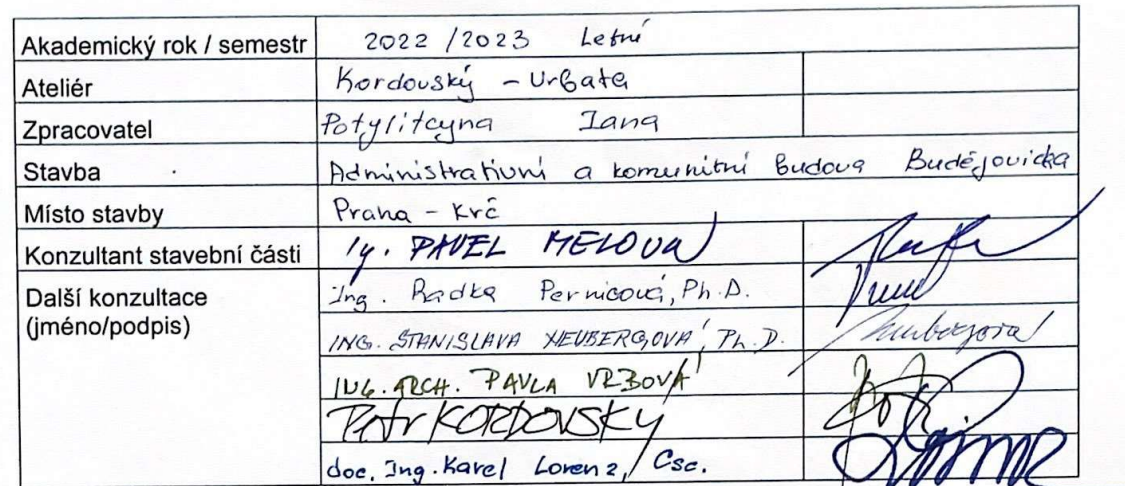 Akademický rok / semestr 2022 / 2023 Letní
Ateliér Kordovský - Urbata
Zpracovatel Potylitcyna Iana
Stavba Administrativní a komunitní budova Budějovická
Místo stavby Praha - Krč
Konzultant stavební části Ig. PAVEL MELOUN
Další konzultace Ing. Radka Pernicová, Ph.D.
(jméno/podpis) ING. STANISLAVA NEUBERGOVÁ, Ph.D.
ING. ARCH. PAVLA VRBOVÁ
Petr KORDOVSKÝ
doc. Ing. Karel Lorenz, Csc.